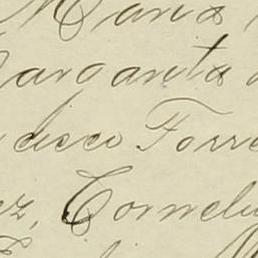 Maria
argarita
cisco Torre
ez, Corneli